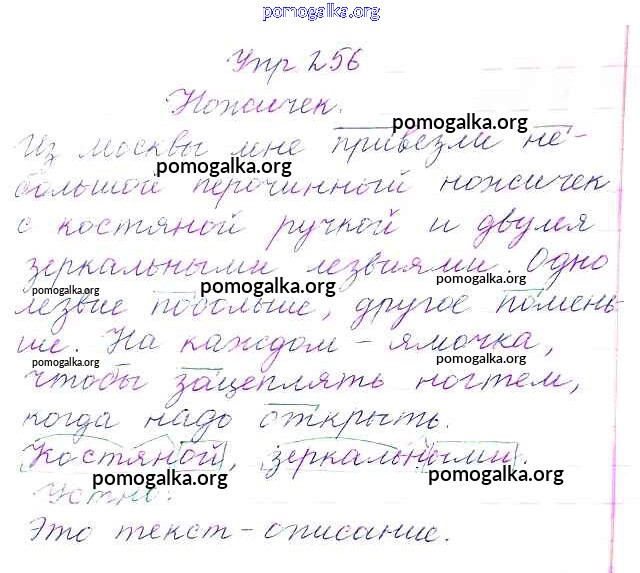 pomogalka.org
Упр 256
Ножичек.
pomogalka.org
Из Москвы мне привезли не-
pomogalka.org
большой перочинный ножичек
с костяной ручкой и двумя
зеркальными лезвиями. Одно
pomogalka.org pomogalka.org pomogalka.org
лезвие побольше, другое помень-
ше. На каждом - ямочка,
pomogalka.org pomogalka.org
чтобы зацеплять ногтем,
когда надо открыть.
Костяной, зеркальными.
pomogalka.org pomogalka.org
Устно:
Это текст - описание.